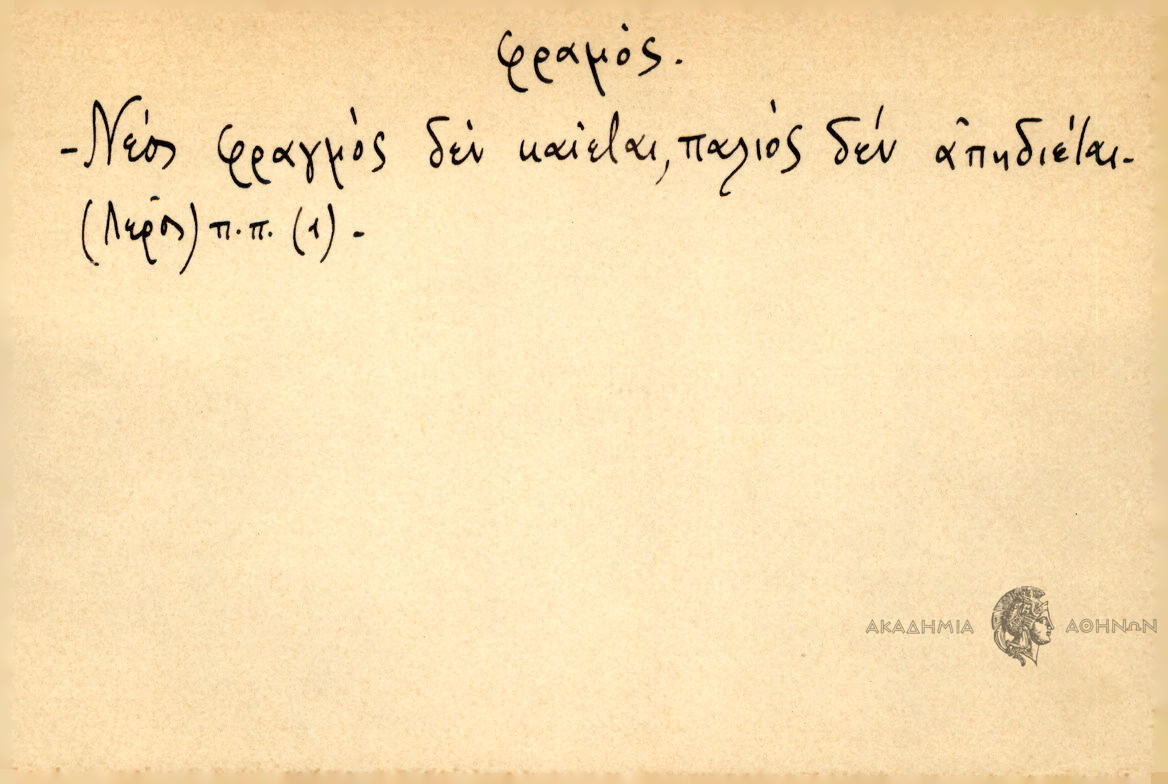 φραμός.
-Νέος φραγμὸς δὲν καίεται, παλιὸς δέν ἀπηδιέται.
(Λερος) π.π. (1) -
ΑΚΑΔΗΜΙΑ ΑΘΗΝΩΝ